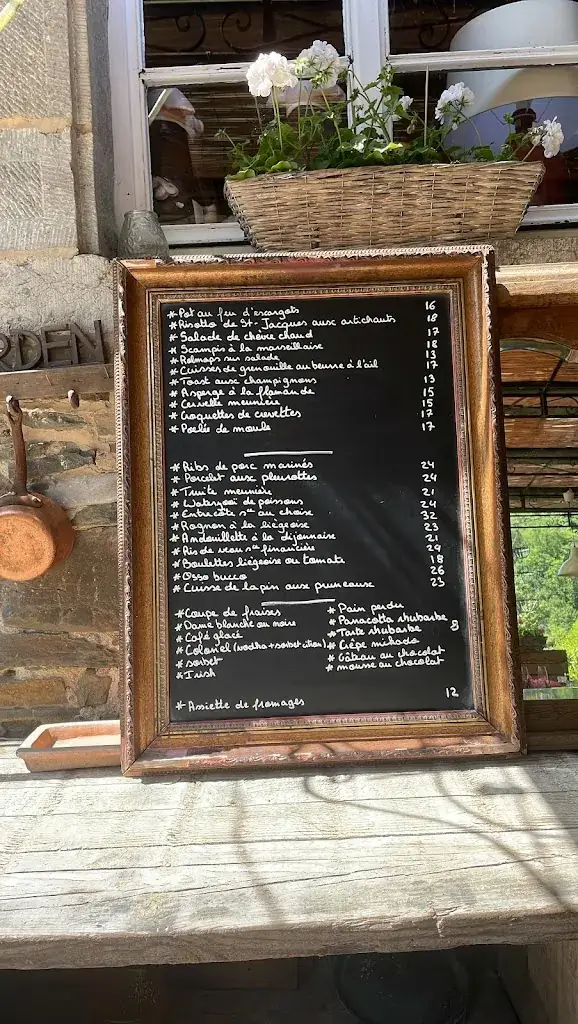 RDEN
* Pot au feu d'escargots 16
* Risotto de St-Jacques aux artichauts 18
* Salade de chèvre chaud 17
* Scampis à la marseillaise 18
* Rolmops sur salade 13
* Cuisses de grenouille au beurre à l'ail 17
* Toast aux champignons 13
* Asperge à la flamande 15
* Cervelle meunière 15
* Croquettes de crevettes 17
* Poelée de moule 17
* Ribs de porc marinés 24
* Porcelet aux pleurottes 24
* Truite meunière 21
* Waterzooi de poissons 24
* Entrecôte sce au choix 32
* Rognon à la liégeoise 23
* Andouillette à la dijonnaise 21
* Ris de veau sce financière 29
* Boulettes liégeoise ou tomate 18
* Osso bucco 26
* Cuisse de lapin aux pruneaux 23
* Coupe de fraises
* Dame blanche ou noire
* Café glacé
* Colonel (vodka+sorbet citron)
* sorbet
* Irish
* Pain perdu
* Panacotta rhubarbe 8
* Tarte rhubarbe
* Crêpe mikado
* Gâteau au chocolat
* mousse au chocolat
* Assiette de fromages 12